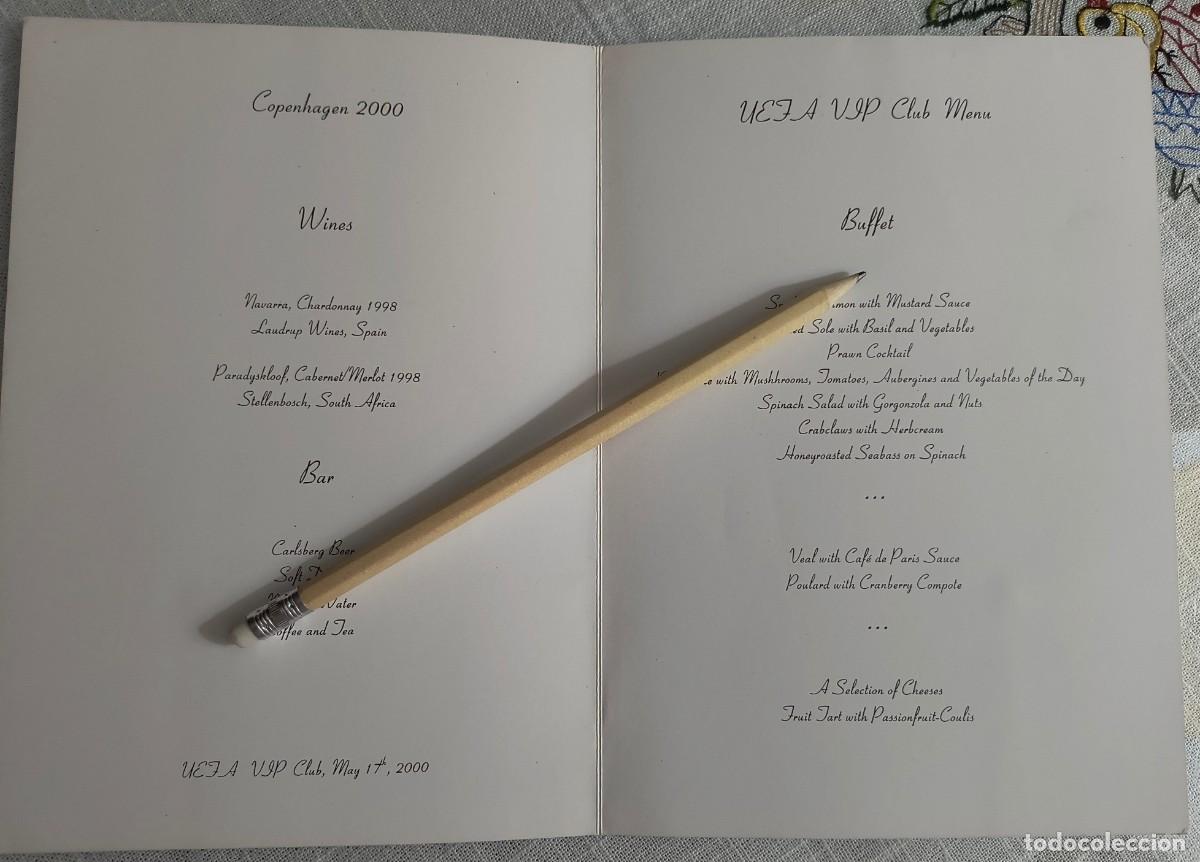 Copenhagen 2000
Wines
Navarra, Chardonnay 1998
Laudrup Wines, Spain
Paradyskloof, Cabernet/Merlot 1998
Stellenbosch, South Africa
Bar
Carlsberg Beer
Soft
Water
Coffee and Tea
UEFA VIP Club, May 17th, 2000
UEFA VIP Club Menu
Buffet
with Mustard Sauce
Sole with Basil and Vegetables
Prawn Cocktail
with Mushhrooms, Tomatoes, Aubergines and Vegetables of the Day
Spinach Salad with Gorgonzola and Nuts
Crabclaws with Herbcream
Honeyroasted Seabass on Spinach
...
Veal with Café de Paris Sauce
Poulard with Cranberry Compote
...
A Selection of Cheeses
Fruit Tart with Passionfruit-Coulis
todocoleccion